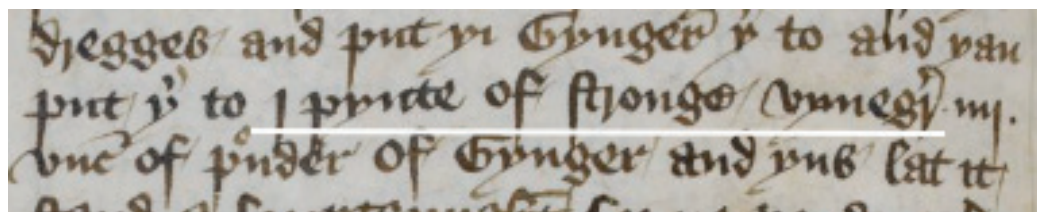 dregges and put yi Gynger yͬ to and yan
put yͬ to j pyncte of stronge vynegͬ iiij.
vnc̄ of pᵒuder of Gynger and yus lat it